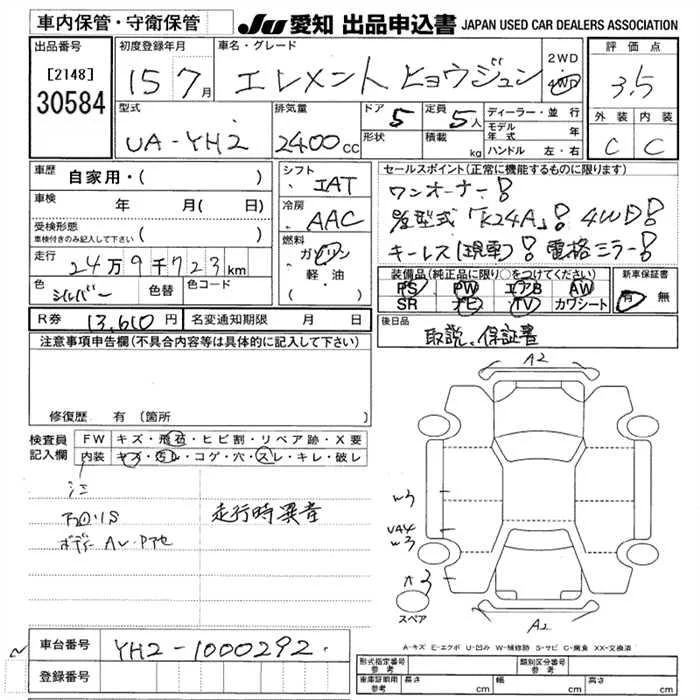 車内保管・守衛保管
JU 愛知 出品申込書 JAPAN USED CAR DEALERS ASSOCIATION
出品番号
[2148]
30584
初度登録年月
15 7月
車名・グレード
エレメント ヒョウジュン
2WD
4WD
評価点
3.5
外装 内装
C C
型式
UA-YH2
排気量
2400cc
ドア 5
形状
定員 5人
積載 kg
ディーラー・並行
モデル年式 年
ハンドル 左・右
車歴 自家用・( )
車検 年 月( 日)
受検形態
車検付きのみ記入して下さい ( )
走行 24万9千723km
色 シルバー 色替 色コード
シフト IAT
冷房 AAC
燃料 ガソリン
軽油
( )
セールスポイント(正常に機能するものに限ります)
ワンオーナー!
型式「K24A」! 4WD!
キーレス(現車)!電格ミラー!
装備品(純正品に限り○をつけてください)
PS PW エアB AW
SR ナビ TV カワシート
新車保証書
有 無
R券 13,610円 名変通知期限 月 日
後日品
取説、保証書
注意事項申告欄(不具合内容等は具体的に記入して下さい)
修復歴 有(箇所 )
検査員記入欄
FW キズ・飛石・ヒビ割・リペア跡・X要
内装 キズ・汚レ・コゲ・穴・スレ・キレ・破レ
走行時異音
A2
W3
UA4
W3
A3
スペア
A2
A-キズ E-エクボ U-凹み W-補修跡 S-サビ C-腐食 XX-交換済
車台番号 YH2-1000292
登録番号
形式指定番号 参考
類別区分番号 参考
車庫証明用 参考 長さ cm 幅 cm 高さ cm